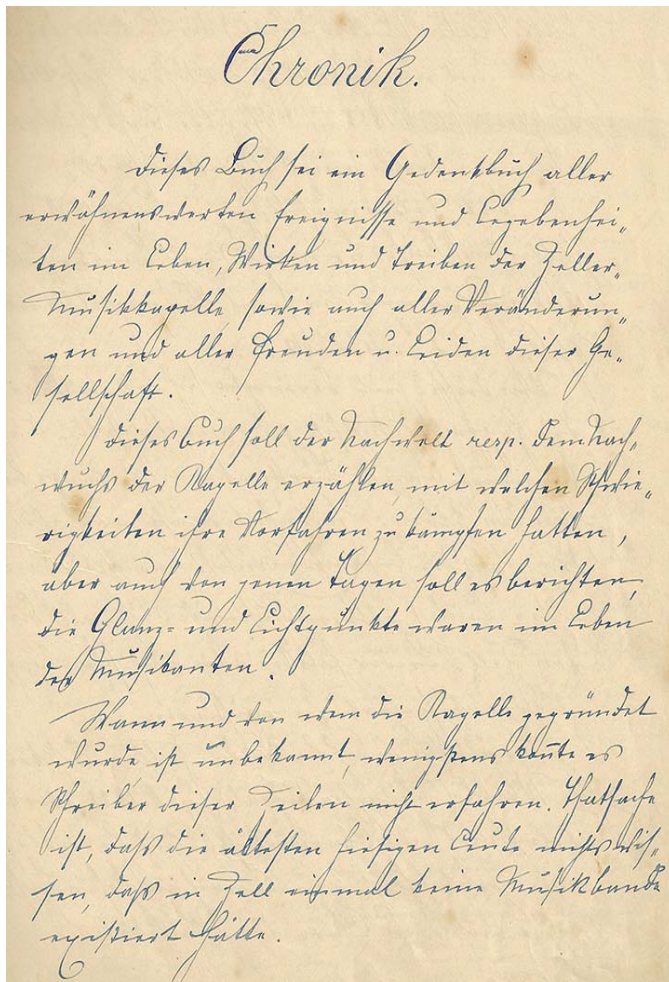 Chronik.
Dieses Buch sei ein Gedenkbuch aller
erwähnenswerten Ereignisse und Begebenhei„
ten im Leben, Wirken und Treiben der Zeller„
Musikkapelle, sowie auch aller Veränderun„
gen und aller Freuden u. Leiden dieser Ge„
sellschaft.
Dieses Buch soll der Nachwelt resp. dem Nach„
wuchs der Kapelle erzählen, mit welchen Schwie„
rigkeiten ihre Vorfahren zu kämpfen hatten,
aber auch von jenen Tagen soll es berichten,
die Glanz= und Lichtpunkte waren im Leben
der Musikanten.
Wann und von wem die Kapelle gegründet
wurde, ist unbekannt, wenigstens konnte es
Schreiber dieser Zeilen nicht erfahren. Thatsache
ist, daß die ältesten hiesigen Leute nichts wis„
sen, daß in Zell einmal keine Musikbande
existiert hätte.